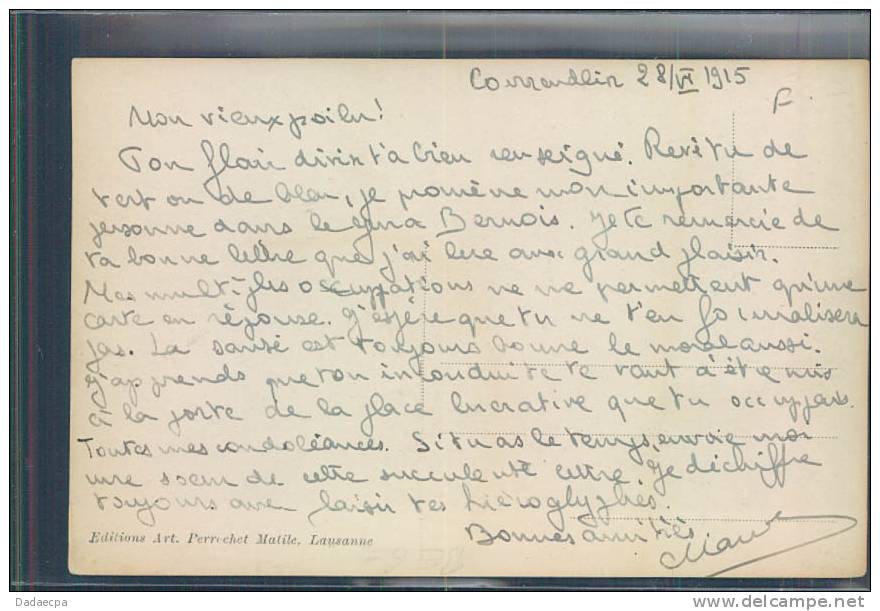 Courrendlin 28/VI 1915
F.
Mon vieux poilu!
Ton flair divin t'a bien renseigné. Revêtu de
vert ou de bleu, je promène mon importante
personne dans le Jura Bernois. Je te remercie de
ta bonne lettre que j'ai lue avec grand plaisir.
Mes multiples occupations ne me permettent qu'une
carte en réponse. J'espère que tu ne t'en formaliseras
pas. La santé est toujours bonne le moral aussi.
J'apprends que ton inconduite te vaut d'être mis
à la porte de la place lucrative que tu occupais.
Toutes mes condoléances. Si tu as le temps, envoie moi
une soeur de cette succulente lettre. Je déchiffre
toujours avec plaisir tes hiéroglyphes.
Bonnes amitiés
Editions Art. Perrochet Matile, Lausanne
Dadaecpa
delcampe.net